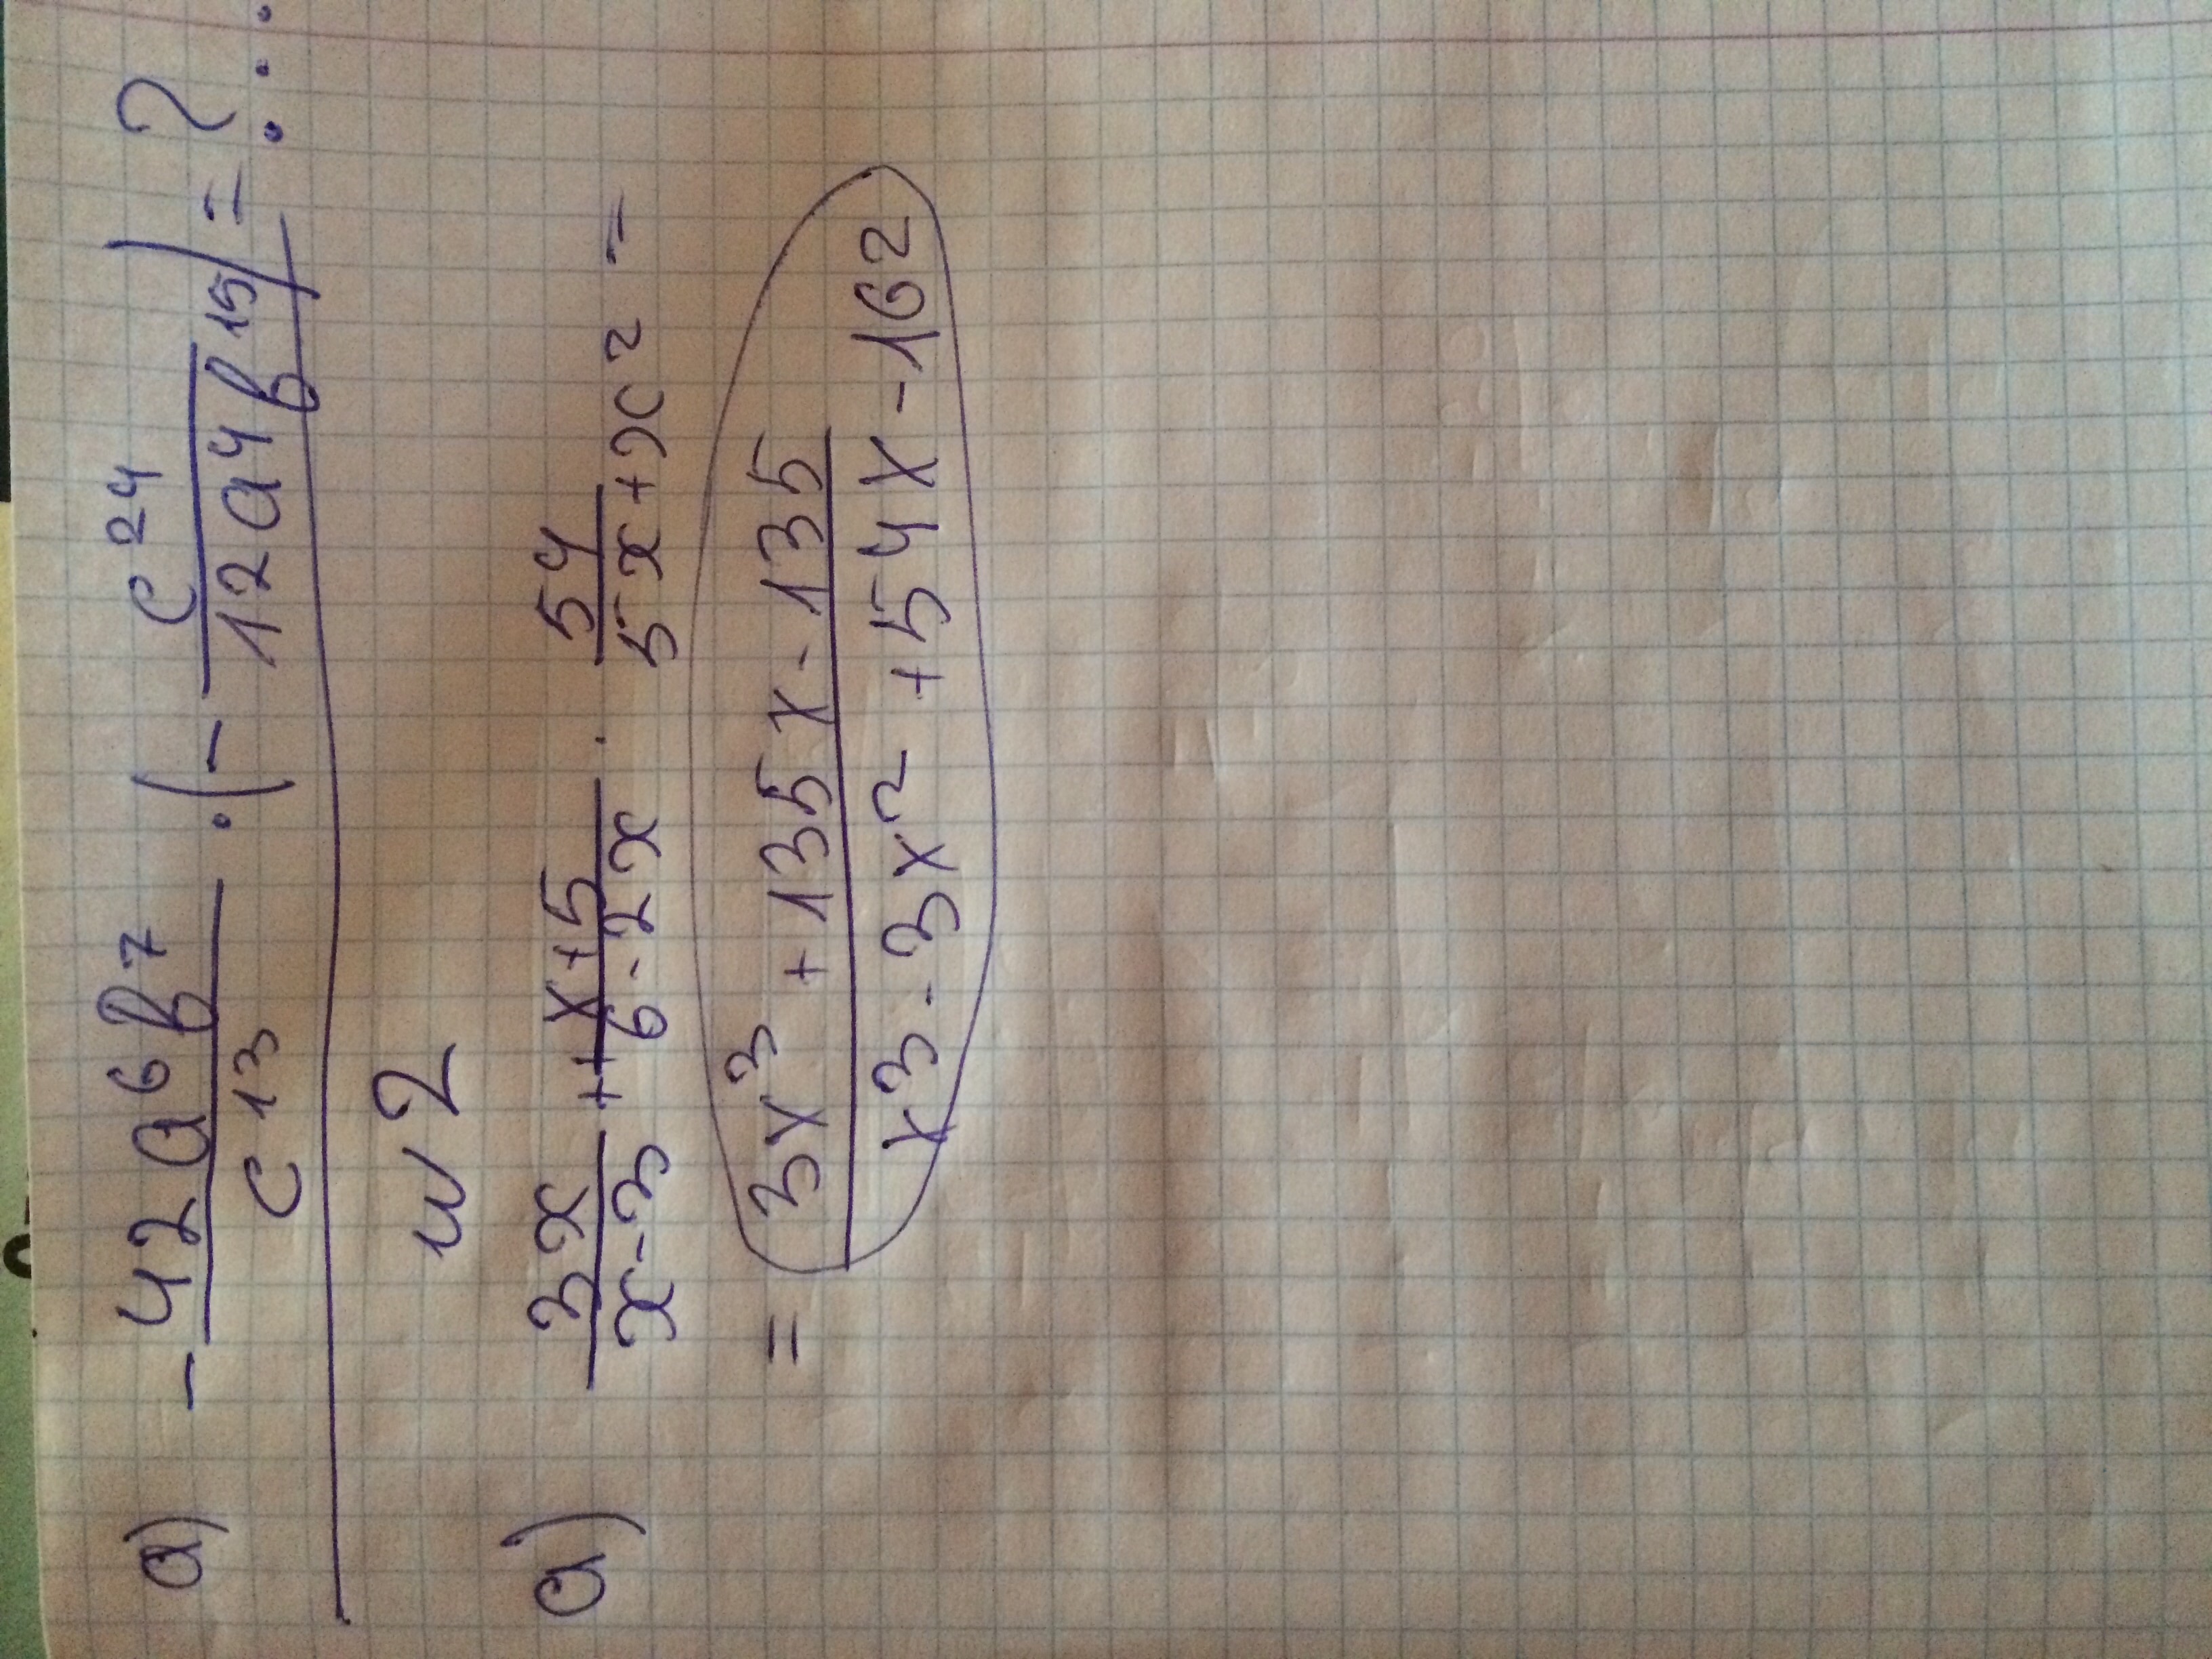 а) - 42a⁶b⁷/c¹³ · (- c²⁴/12a⁴b¹⁵) = ? ...
и 2
а) 3x/x-3 + x+5/6-2x · 54/5x+x² =
= 3x³+135x-135/x3-3x²+54x-162